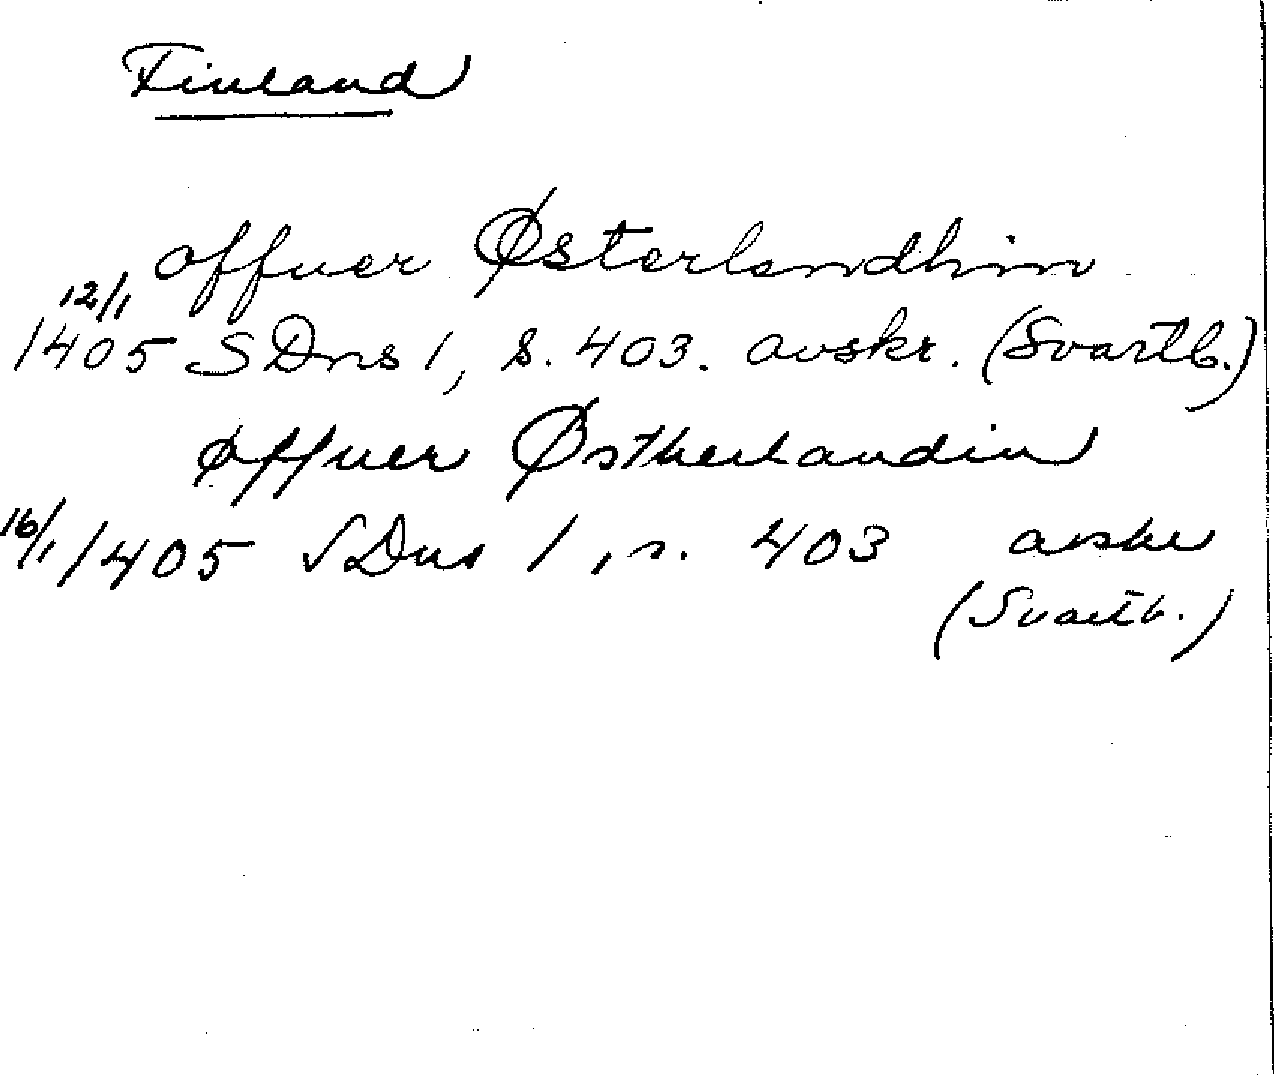 Finland
offuer Østerlandhin
12/1 1405 SDns 1, s. 403. avskr. (Svartb.)
øffuer Østherlandin
16/1 1405 SDns 1, s. 403 avskr
(Svartb.)